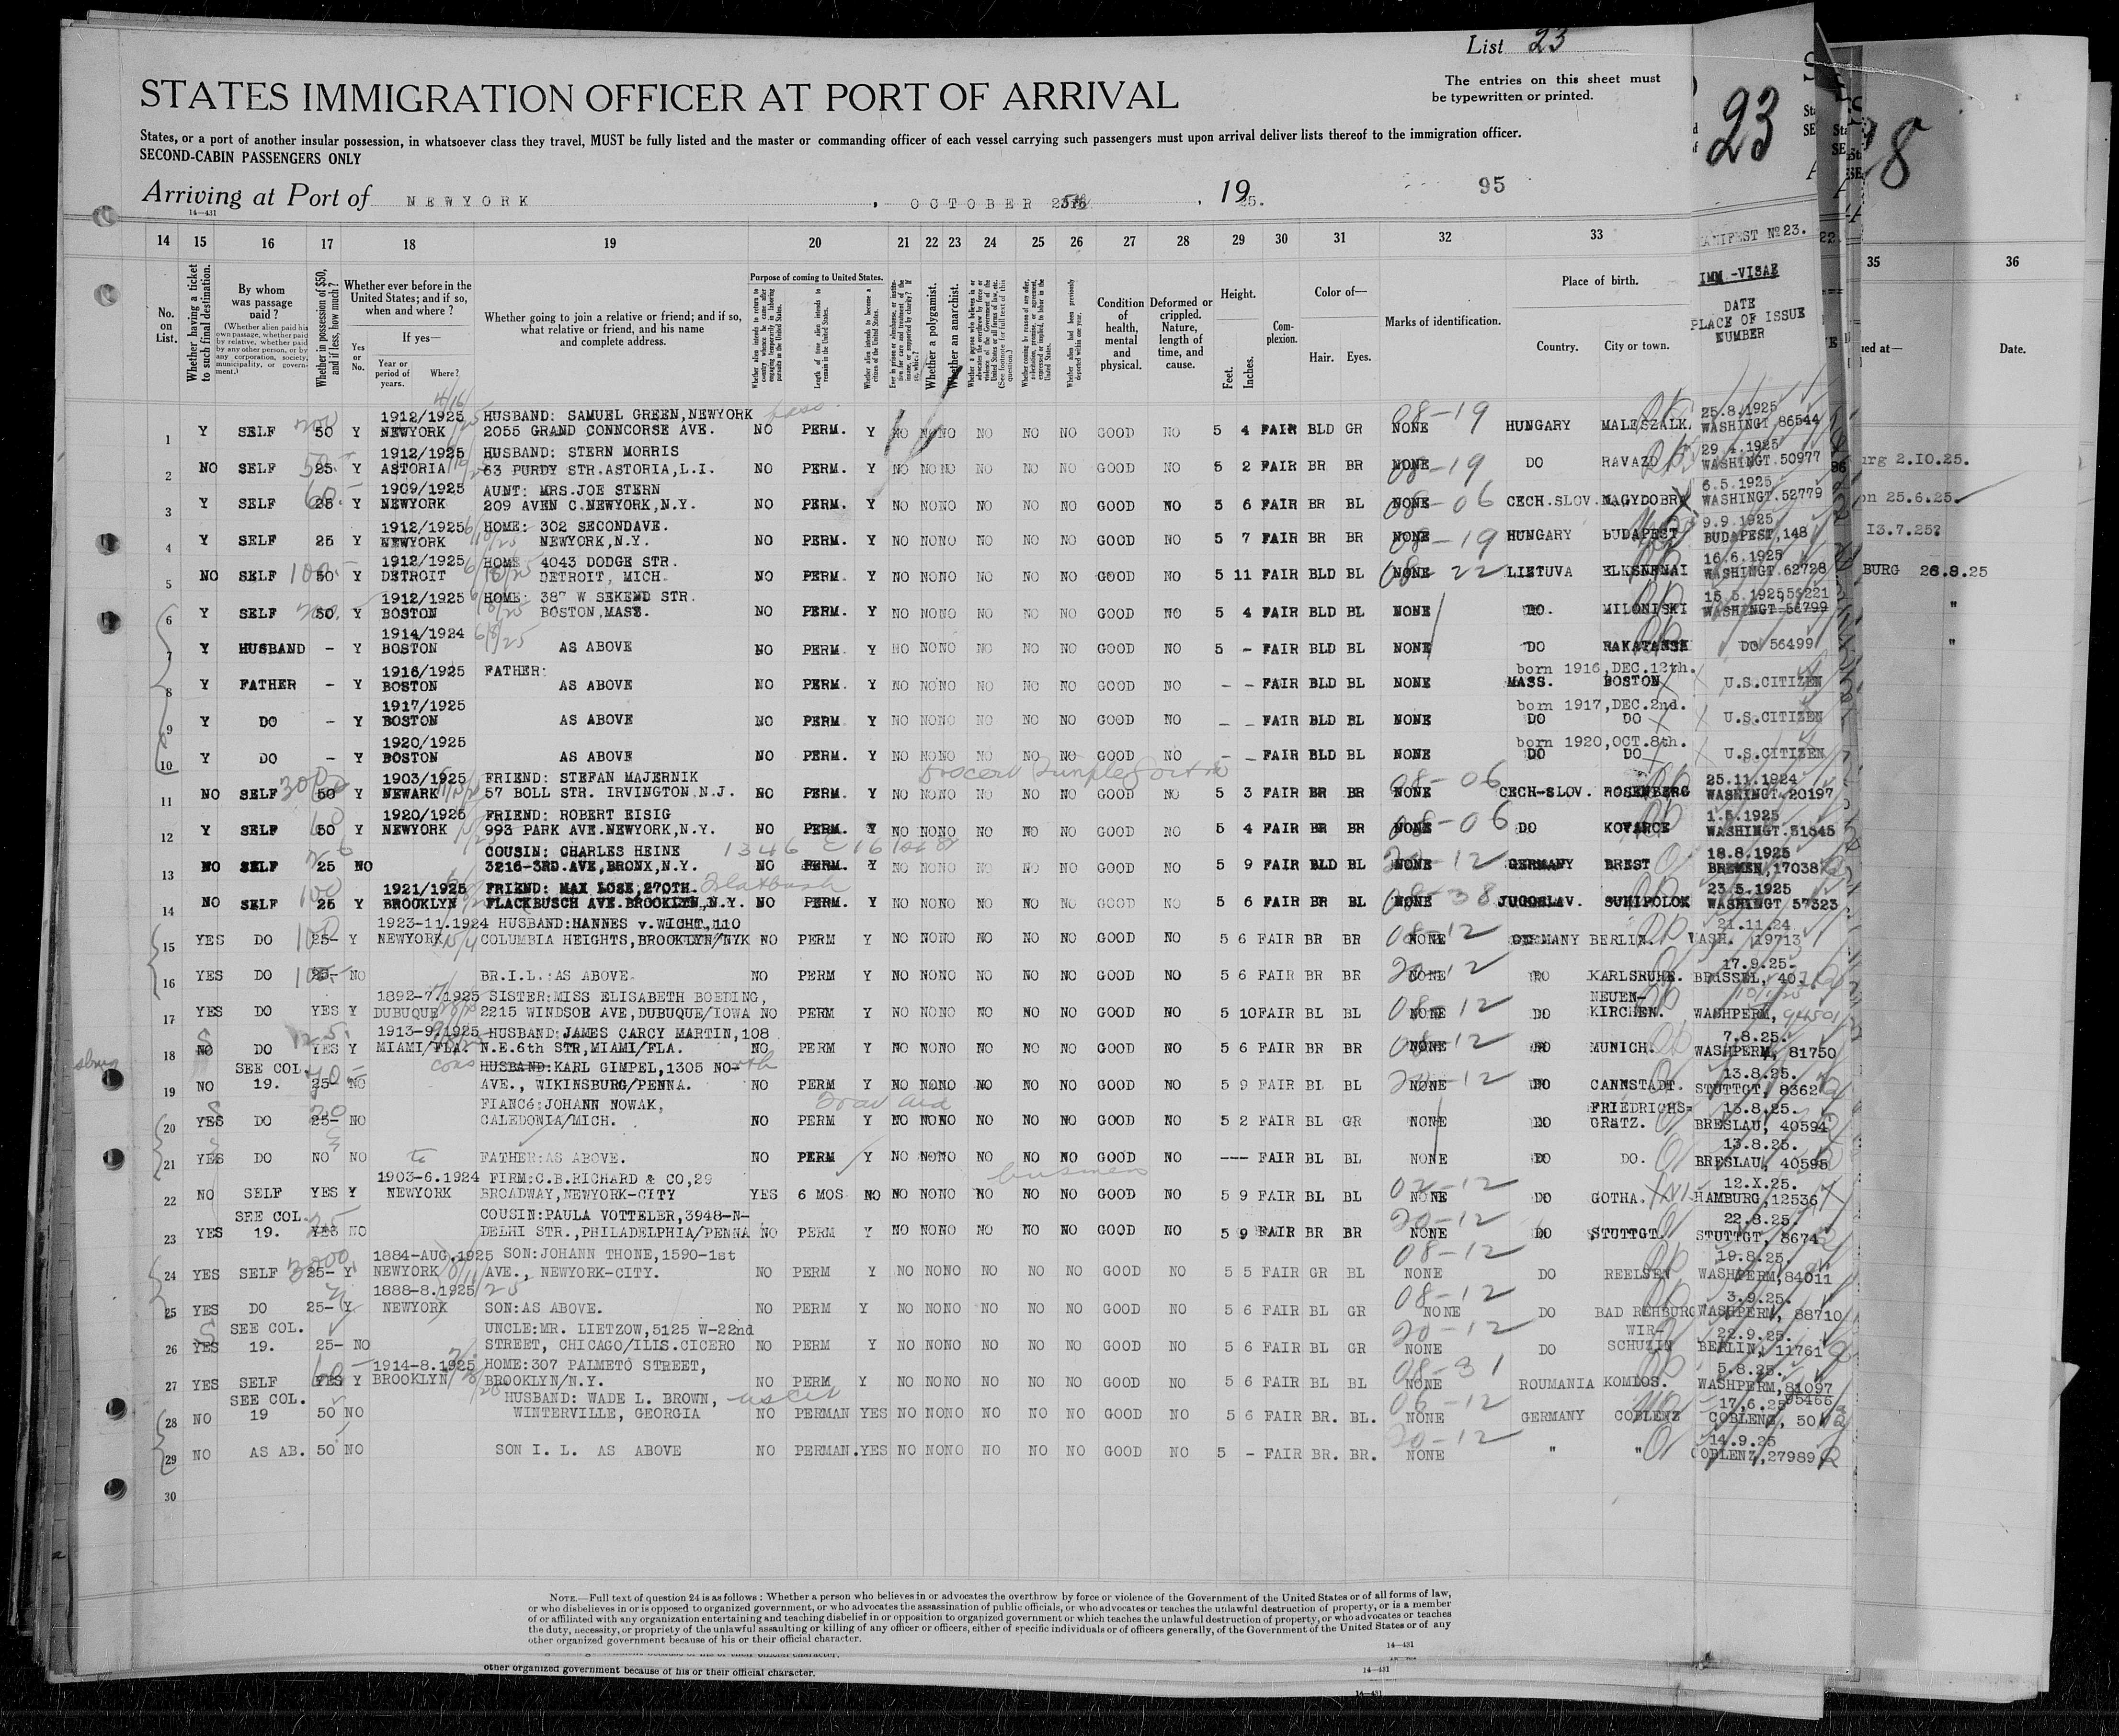 List 23
STATES IMMIGRATION OFFICER AT PORT OF ARRIVAL
The entries on this sheet must
be typewritten or printed.
States, or a port of another insular possession, in whatsoever class they travel, MUST be fully listed and the master or commanding officer of each vessel carrying such passengers must upon arrival deliver lists thereof to the immigration officer.
SECOND-CABIN PASSENGERS ONLY
Arriving at Port of NEWYORK, OCTOBER, 1925. 95
14—431
23
28
14 15 16 17 18 19 20 21 22 23 24 25 26 27 28 29 30 31 32 33 MANIFEST No 23. 22. 35 36
No. on List.
Whether having a ticket to such final destination.
By whom was passage paid?
(Whether alien paid his own passage, whether paid by relative, whether paid by any other person, or by any corporation, society, municipality, or government.)
Whether in possession of $50, and if less, how much?
Whether ever before in the United States; and if so, when and where?
Yes or No.
If yes—
Year or period of years.
Where?
Whether going to join a relative or friend; and if so, what relative or friend, and his name and complete address.
Purpose of coming to United States.
Whether alien intends to return to country whence he came after engaging temporarily in laboring pursuits in the United States.
Length of time alien intends to remain in the United States.
Whether alien intends to become a citizen of the United States.
Whether a polygamist.
Whether an anarchist.
Condition of health, mental and physical.
Deformed or crippled. Nature, length of time, and cause.
Height.
Feet.
Inches.
Complexion.
Color of—
Hair.
Eyes.
Marks of identification.
Place of birth.
Country.
City or town.
IMM.-VISAE
DATE
PLACE OF ISSUE
NUMBER
Date.
1912/1925 HUSBAND: SAMUEL GREEN,NEWYORK 08-19 25.8.1925
1 Y SELF 50 Y NEWYORK 2055 GRAND CONNCORSE AVE. NO PERM. Y NO NO NO NO NO NO GOOD NO 5 4 FAIR BLD GR NONE HUNGARY MALESZALK. WASHINGT 86544
1912/1925 HUSBAND: STERN MORRIS 29 4.1925
2 NO SELF 25 Y ASTORIA 63 PURDY STR.ASTORIA,L.I. NO PERM. Y NO NO NO NO NO NO GOOD NO 5 2 FAIR BR BR NONE 08-19 DO RAVAZO WASHINGT.50977 2.10.25.
1909/1925 AUNT: MRS.JOE STERN 6.5.1925
3 Y SELF 25 Y NEWYORK 209 AVEN C.NEWYORK,N.Y. NO PERM. Y NO NO NO NO NO NO GOOD NO 5 6 FAIR BR BL NONE 08-06 CECH.SLOV. NAGYDOBRA WASHINGT.52779 25.6.25.
1912/1925 HOME: 302 SECONDAVE. 9.9.1925
4 Y SELF 25 Y NEWYORK NEWYORK,N.Y. NO PERM. Y NO NO NO NO NO NO GOOD NO 5 7 FAIR BR BR NONE 08-19 HUNGARY BUDAPEST BUDAPEST,148 13.7.25
1912/1925 HOME 4043 DODGE STR. 16.6.1925
5 NO SELF 50 Y DETROIT DETROIT, MICH. NO PERM. Y NO NO NO NO NO NO GOOD NO 5 11 FAIR BLD BL NONE 08-22 LIETUVA ELKSNENAI WASHINGT.62728 BURG 26.8.25
1912/1925 HOME: 387 W SEKEND STR.
6 Y SELF 50. Y BOSTON BOSTON,MASS. NO PERM. Y NO NO NO NO NO NO GOOD NO 5 4 FAIR BLD BL NONE DO. MILONISKI WASHINGT.56799 "
1914/1924 6/8/25
7 Y HUSBAND - Y BOSTON AS ABOVE NO PERM. Y NO NO NO NO NO NO GOOD NO 5 - FAIR BLD BL NONE DO DO 56499 "
1916/1925 FATHER: born 1916,DEC.12th.
8 Y FATHER - Y BOSTON AS ABOVE NO PERM. Y NO NO NO NO NO NO GOOD NO - - FAIR BLD BL NONE MASS. BOSTON U.S.CITIZEN
1917/1925 born 1917,DEC.2nd.
9 Y DO - Y BOSTON AS ABOVE NO PERM. Y NO NO NO NO NO NO GOOD NO - - FAIR BLD BL NONE DO DO U.S.CITIZEN
1920/1925 born 1920,OCT.8th.
10 Y DO - Y BOSTON AS ABOVE NO PERM. Y NO NO NO NO NO NO GOOD NO - - FAIR BLD BL NONE DO DO U.S.CITIZEN
1903/1925 FRIEND: STEFAN MAJERNIK 08-06 25.11.1924
11 NO SELF 50 Y NEWARK 57 BOLL STR. IRVINGTON N.J. NO PERM. Y NO NO NO NO NO NO GOOD NO 5 3 FAIR BR BR NONE CECH-SLOV. ROSENBERG WASHINGT.20197
1920/1925 FRIEND: ROBERT EISIG 08-06 1.5.1925
12 Y SELF 50 Y NEWYORK 993 PARK AVE.NEWYORK,N.Y. NO PERM. Y NO NO NO NO NO NO GOOD NO 5 4 FAIR BR BR NONE DO KOVARCE WASHINGT.51545
COUSIN: CHARLES HEINE 1346 E 16 18.8.1925
13 NO SELF 25 NO 3216-3RD.AVE,BRONX,N.Y. NO PERM. Y NO NO NO NO NO NO GOOD NO 5 9 FAIR BLD BL NONE 20-12 GERMANY BREST BREMEN,17038
1921/1925 FRIEND: MAX LOSE,270TH. Flatbush 23 5.1925
14 NO SELF 25 Y BROOKLYN FLACKBUSCH AVE.BROOKLYN,N.Y. NO PERM. Y NO NO NO NO NO NO GOOD NO 5 6 FAIR BR BL NONE 08-38 JUGOSLAV. SUHIPOLOK WASHINGT 57323
1923-11.1924 HUSBAND:HANNES v.WICHT,110 21.11.24.
15 YES DO 25- Y NEWYORK COLUMBIA HEIGHTS,BROOKLYN/NYK NO PERM Y NO NO NO NO NO NO GOOD NO 5 6 FAIR BR BR NONE 08-12 GERMANY BERLIN. WASH. 19713
17.9.25.
16 YES DO 25- NO BR.I.L.:AS ABOVE. NO PERM Y NO NO NO NO NO NO GOOD NO 5 6 FAIR BR BR NONE 20-12 DO KARLSRUHE. BRüSSEL, 40.
1892-7.1925 SISTER:MISS ELISABETH BOEDING, NEUEN-
17 YES DO YES Y DUBUQUE 2215 WINDSOR AVE,DUBUQUE/IOWA NO PERM Y NO NO NO NO NO NO GOOD NO 5 10 FAIR BL BL NONE 08-12 DO KIRCHEN. WASHPERM, 94501
1913-9.1925 HUSBAND:JAMES CARCY MARTIN,108 7.8.25.
18 NO DO YES Y MIAMI/FLA. N.E.6th STR,MIAMI/FLA. NO PERM Y NO NO NO NO NO NO GOOD NO 5 6 FAIR BR BR NONE 08-12 DO MUNICH. WASHPERM, 81750
SEE COL. HUSBAND:KARL GIMPEL,1305 NO- 13.8.25.
19 NO 19. 25- NO AVE., WIKINSBURG/PENNA. NO PERM Y NO NO NO NO NO NO GOOD NO 5 9 FAIR BL BL NONE 20-12 DO CANNSTADT. STUTTGT, 8362
FIANCé:JOHANN NOWAK, FRIEDRICHS= 13.8.25.
20 YES DO 25- NO CALEDONIA/MICH. NO PERM Y NO NO NO NO NO NO GOOD NO 5 2 FAIR BL GR NONE DO GRäTZ. BRESLAU, 40594
13.8.25.
21 YES DO NO NO FATHER:AS ABOVE. NO PERM Y NO NO NO NO NO NO GOOD NO --- FAIR BL BL NONE DO DO. BRESLAU, 40595
1903-6.1924 FIRM:C.B.RICHARD & CO,29 business 12.X.25.
22 NO SELF YES Y NEWYORK BROADWAY,NEWYORK-CITY YES 6 MOS NO NO NO NO NO NO NO GOOD NO 5 9 FAIR BL BL NONE 02-12 DO GOTHA. HAMBURG,12536
SEE COL. COUSIN:PAULA VOTTELER,3948-N- 22.8.25.
23 YES 19. YES NO DELHI STR.,PHILADELPHIA/PENNA NO PERM Y NO NO NO NO NO NO GOOD NO 5 9 FAIR BR BR NONE 20-12 DO STUTTGT. STUTTGT, 8674
1884-AUG.1925 SON:JOHANN THONE,1590-1st 08-12 19.8.25.
24 YES SELF 25- Y NEWYORK AVE., NEWYORK-CITY. NO PERM Y NO NO NO NO NO NO GOOD NO 5 5 FAIR GR BL NONE DO REELSEN WASHPERM,84011
1888-8.1925 08-12 3.9.25.
25 YES DO 25- Y NEWYORK SON:AS ABOVE. NO PERM Y NO NO NO NO NO NO GOOD NO 5 6 FAIR BL GR NONE DO BAD REHBURG WASHPERM, 88710
SEE COL. UNCLE:MR. LIETZOW,5125 W-22nd 20-12 WIR- 22.9.25.
26 YES 19. 25- NO STREET, CHICAGO/ILIS.CICERO NO PERM Y NO NO NO NO NO NO GOOD NO 5 6 FAIR BL GR NONE DO SCHUZIN BERLIN, 11761
1914-8.1925 HOME:307 PALMETO STREET, 08-31 5.8.25.
27 YES SELF YES Y BROOKLYN BROOKLYN/N.Y. NO PERM Y NO NO NO NO NO NO GOOD NO 5 6 FAIR BL BL NONE ROUMANIA KOMLOS. WASHPERM,81097
SEE COL. HUSBAND: WADE L. BROWN, 06-12 17,6.25
28 NO 19 50 NO WINTERVILLE, GEORGIA NO PERMAN YES NO NO NO NO NO NO GOOD NO 5 6 FAIR BR. BL. NONE GERMANY COBLENZ COBLENZ, 50
20-12 14.9.25
29 NO AS AB. 50 NO SON I. L. AS ABOVE NO PERMAN. YES NO NO NO NO NO NO GOOD NO 5 - FAIR BR. BR. NONE " " COBLENZ,27989
30
NOTE.—Full text of question 24 is as follows: Whether a person who believes in or advocates the overthrow by force or violence of the Government of the United States or of all forms of law,
or who disbelieves in or is opposed to organized government, or who advocates the assassination of public officials, or who advocates or teaches the unlawful destruction of property, or is a member
of or affiliated with any organization entertaining and teaching disbelief in or opposition to organized government or which teaches the unlawful destruction of property, or who advocates or teaches
the duty, necessity, or propriety of the unlawful assaulting or killing of any officer or officers, either of specific individuals or of officers generally, of the Government of the United States or of any
other organized government because of his or their official character.
14—431
other organized government because of his or their official character.
14—431
14—431